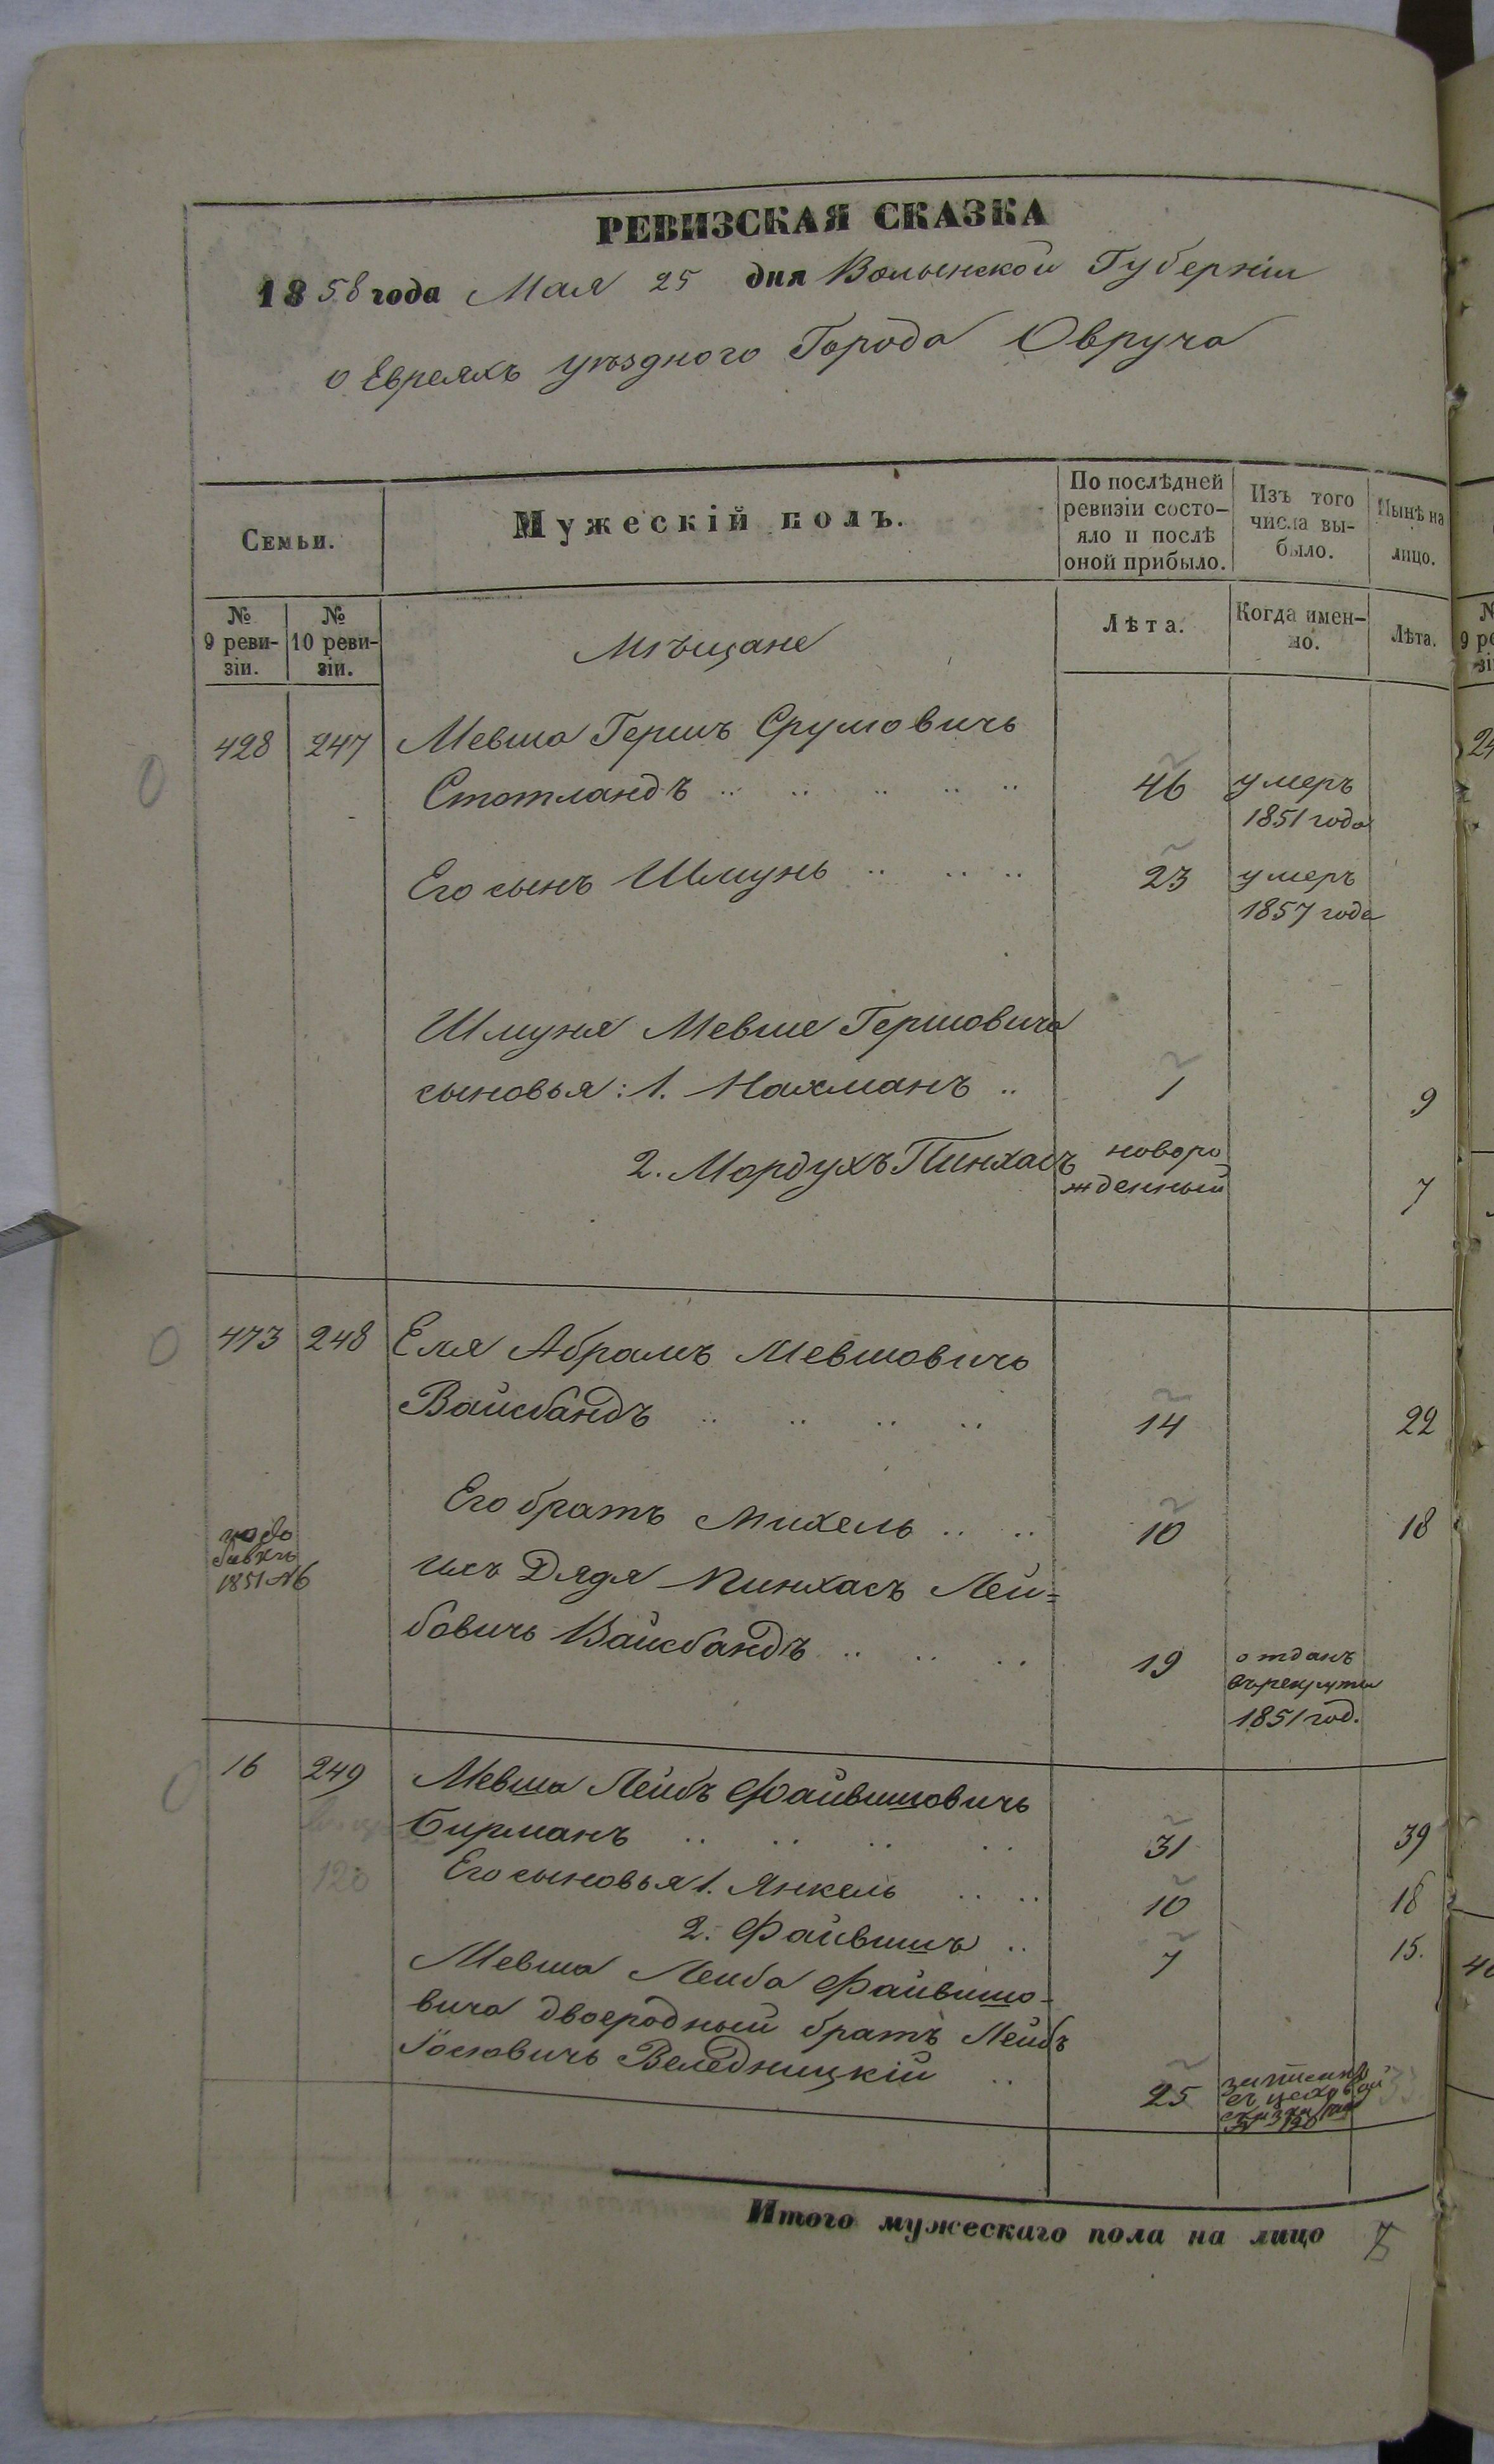 РЕВИЗСКАЯ СКАЗКА
1858 года Мая 25 дня Волынской Губерніи
о Евреяхъ уѣзднаго Города Овруча
Семьи.
Мужескій полъ.
По послѣдней ревизіи состо-
яло и послѣ
оной прибыло.
Изъ того
числа вы-
было.
Нынѣ на
лицо.
№
9 реви-
зіи.
№
10 реви-
зіи.
Мѣщане
Лѣта.
Когда имен-
но.
Лѣта.
428 247 Мевша Гершъ Срумовичъ
Стотландъ 46 умеръ
1851 года
Его сынъ Шмунь 23 умеръ
1857 года
Шмуня Мевше Гершовича
сыновья: 1. Нахманъ 1 9
2. Мордухъ Пинхасъ новоро
жденный 7
473 248 Еля Абрамъ Мевшовичъ
Вайсбандъ 14 22
Его братъ Михель 10 18
1851 №6
ихъ Дядя Пинхасъ Лей=
бовичъ Вайсбандъ 19 отданъ
въ рекруты
1851 год.
16 249 Мевша Лейбъ Файвишовичъ
Бирманъ 31 39
120
Его сыновья 1. Янкель 10 18
2. Файвишъ 7 15.
Мевша Лейба Файвишо-
вича двоеродный братъ Лейбъ
Іосіовичъ Веледницкій 25 записанъ
Итого мужескаго пола на лицо 7